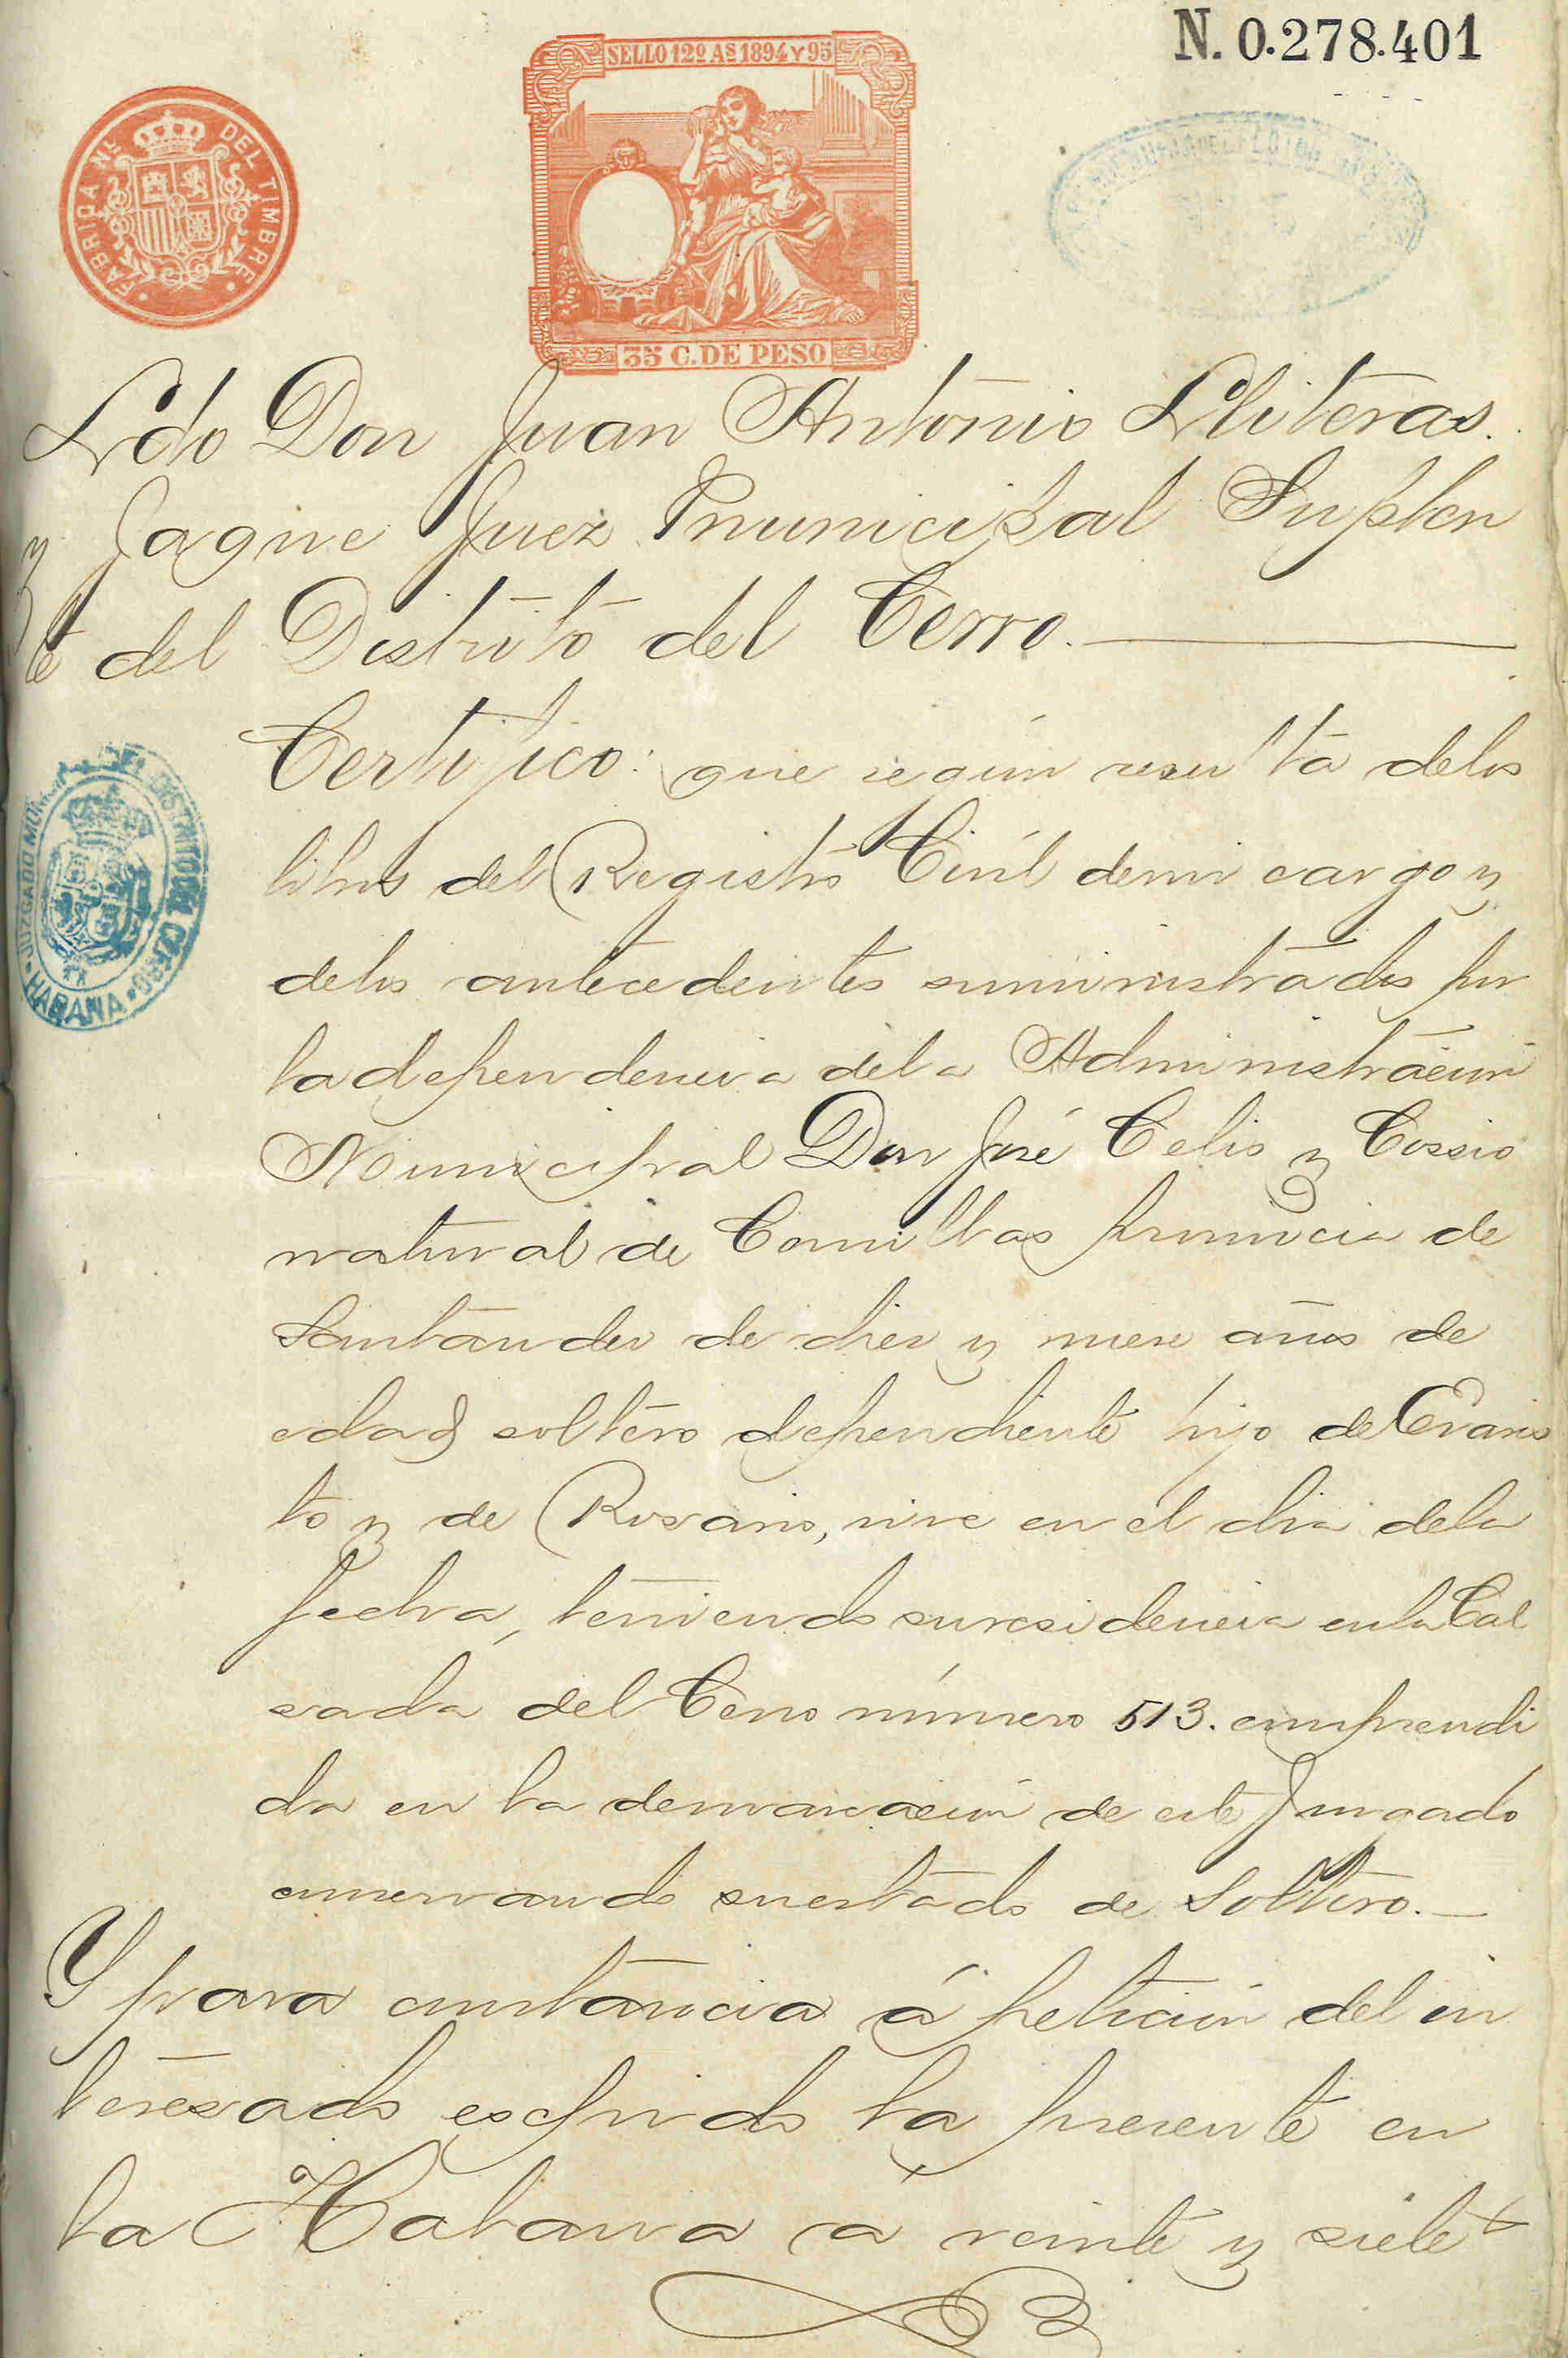 N. 0.278.401
SELLO 12º AS 1894 Y 95
FABRICA NL. DEL TIMBRE
35 C. DE PESO
Ldo Don Juan Antonio Lliteras
y Jagme Juez Municipal Suplen
te del Distrito del Cerro.
Certifico: que según resulta delos
libros del Registro Civil demi cargo y
delos antecedentes suministrados por
la dependencia dela Administración
Municipal Don José Celis y Cossio
natural de Comillas provincia de
Santander de diez y nueve años de
edad soltero dependiente hijo de Evaris
to y de Rosario, vive en el dia dela
fecha, teniendo su residencia en la Cal
zada del Cerro número 513. comprendi
da en la demarcación de este Juzgado
conservando su estado de Soltero.
JUZGADO MUNICIPAL DEL DISTRITO DEL CERRO
HABANA
Y para constancia á petición del in
teresado espido la presente en
la Habana a veinte y siete